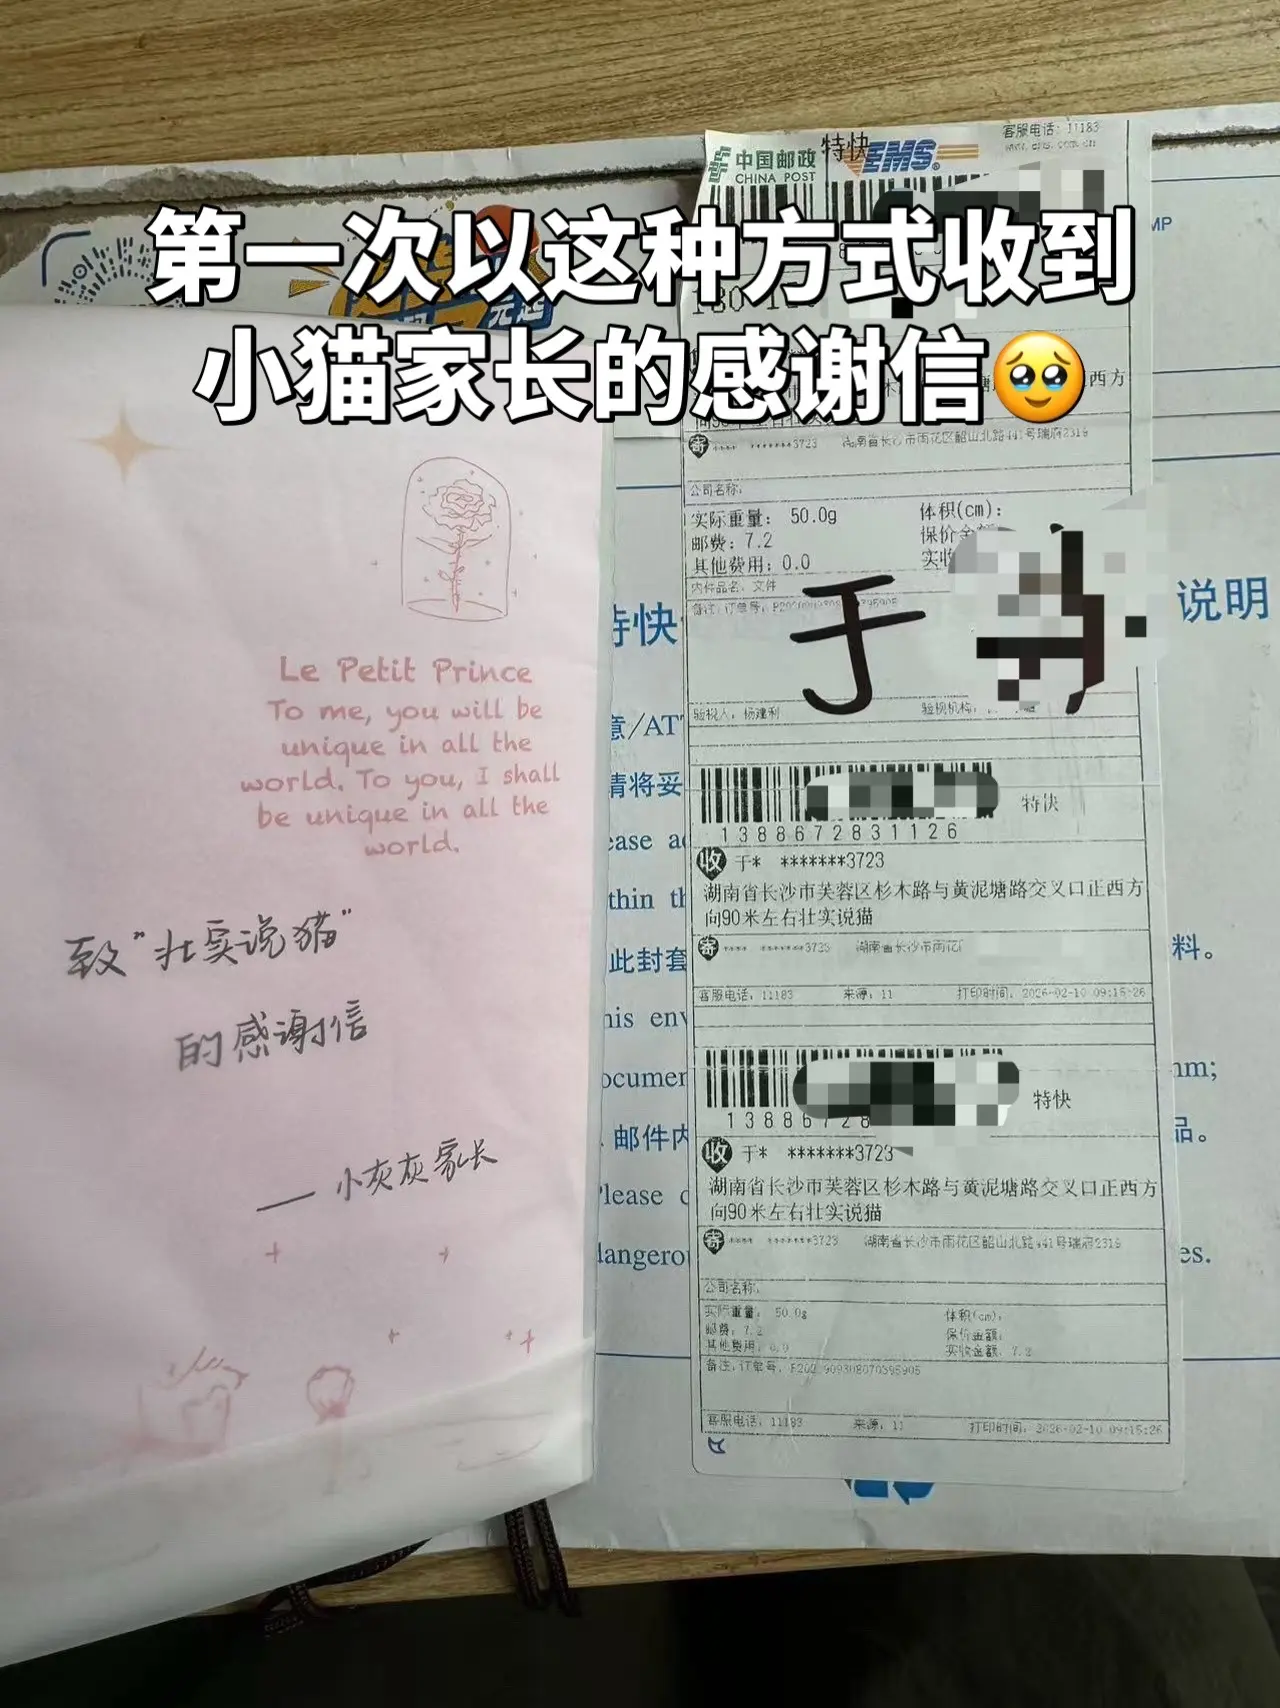 第一次以这种方式收到
小猫家长的感谢信🥹
中国邮政
CHINA POST
特快
EMS
客服电话：11183
www.ems.com.cn
正西方
寄 **** *******3723 湖南省长沙市雨花区韶山北路441号瑞府2319
公司名称：
实际重量： 50.0g
体积(cm)：
邮费：7.2
其他费用：0.0
内件品名：文件
验视人：杨建利
验视机构：
于
说明
特快
1388672831126
收 于* *******3723
湖南省长沙市芙蓉区杉木路与黄泥塘路交叉口正西方
向90米左右壮实说猫
寄 **** *******3723 湖南省长沙市雨花
客服电话：11183 来源：11 打印时间：2026-02-10 09:15:26
特快
13886728
收 于* *******3723
湖南省长沙市芙蓉区杉木路与黄泥塘路交叉口正西方
向90米左右壮实说猫
寄 **** *******3723 湖南省长沙市雨花区韶山北路441号瑞府2319
公司名称：
实际重量： 50.0g
体积(cm)：
邮费：7.2
保价金额：
其他费用：0.0
实收金额：7.2
客服电话：11183 来源：11 打印时间：2026-02-10 09:15:26
Le Petit Prince
To me, you will be
unique in all the
world. To you, I shall
be unique in all the
world.
致"壮实说猫"
的感谢信
——小灰灰家长